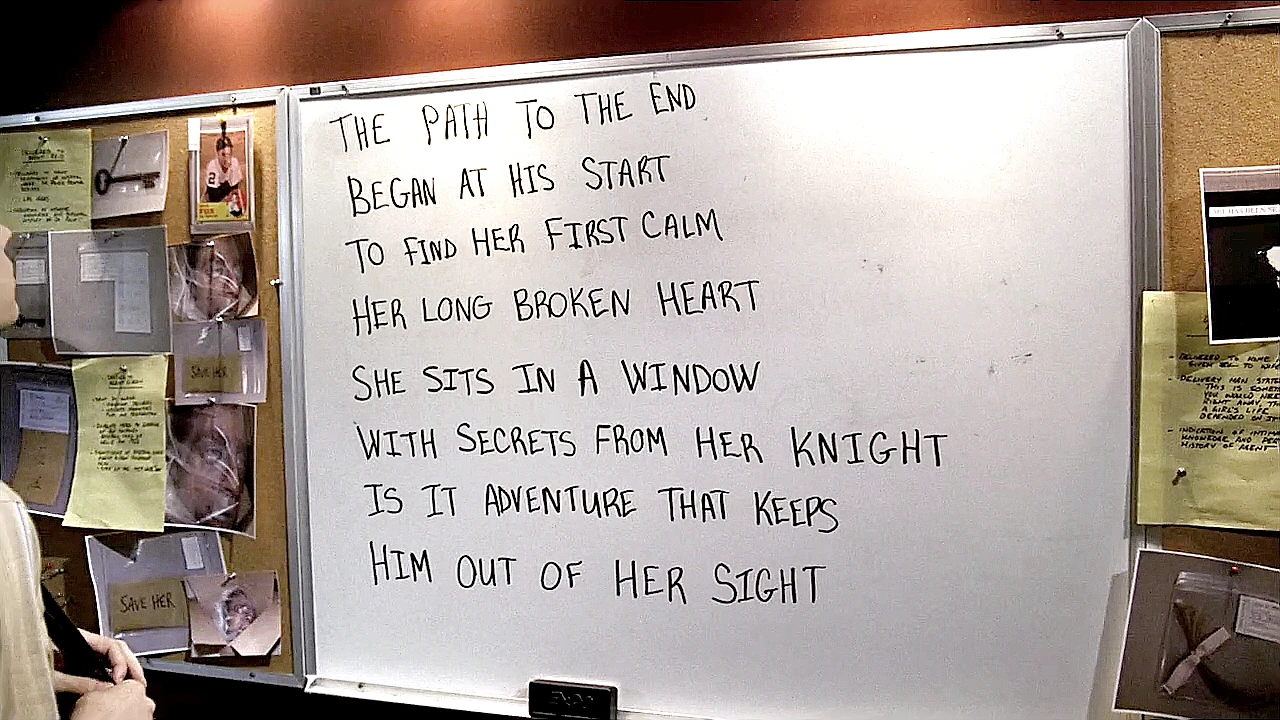 THE PATH TO THE END
BEGAN AT HIS START
TO FIND HER FIRST CALM
HER LONG BROKEN HEART
SHE SITS IN A WINDOW
WITH SECRETS FROM HER KNIGHT
IS IT ADVENTURE THAT KEEPS
HIM OUT OF HER SIGHT
SAVE HER
SAVE HER
2
DELIVERED TO HOME
DELIVERY MAN
THIS IS
YOU WOULD
RIGHT AWAY,
A GIRL'S LIFE
DEPENDED ON IT
INDICATION OF
KNOWLEDGE AND
HISTORY OF AGENT